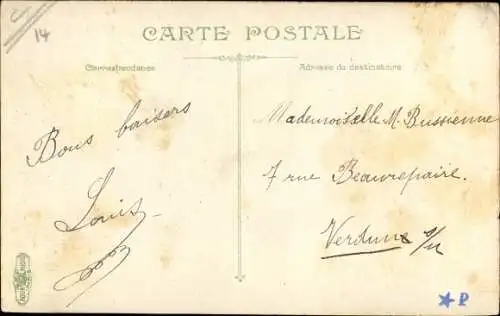 14
CARTE POSTALE
Correspondance
Adresse du destinataire
Bons baisers
Louis
Mademoiselle M. Bussienne
7 rue Beaurepaire.
Verdun s/M
★ P